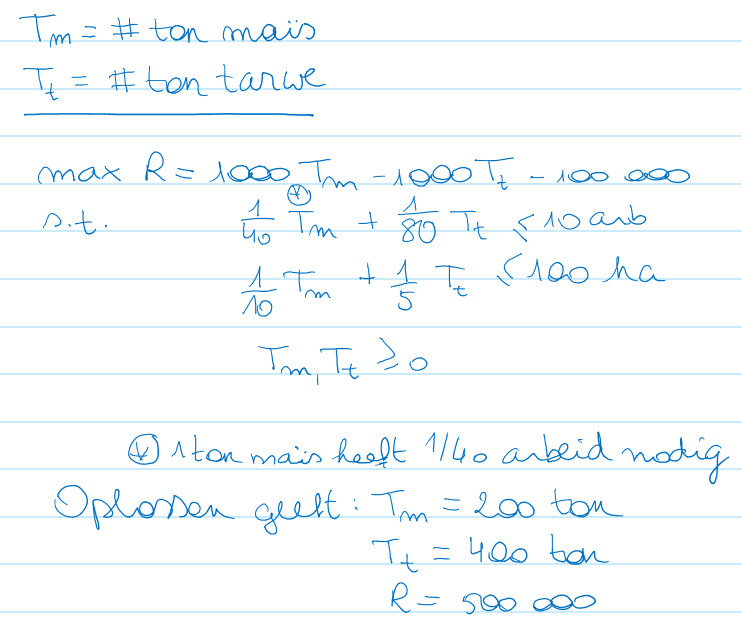 Tm = # ton maïs
Tt = # ton tarwe
max R = 1000 Tm - 1000 Tt - 100 000
s.t. 1/40 Tm(*) + 1/80 Tt ≤ 10 arb
1/10 Tm + 1/5 Tt ≤ 100 ha
Tm, Tt ≥ 0
(*) 1 ton maïs heeft 1/40 arbeid nodig
Oplossen geeft: Tm = 200 ton
Tt = 400 ton
R = 500 000